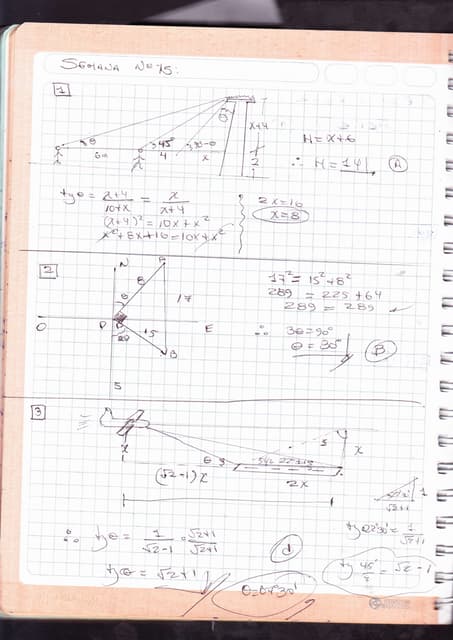 SEMANA Nº 15:
1
θ
x+4
θ
45°
90-θ
6m
4
x
2
H = x+6
∴ H = 14 | A
tgθ = x+4/10+x = x/x+4
(x+4)² = 10x+x²
x²+8x+16 = 10x+x²
2x=16
x=8
2
N
A
8
θ
17
O
P
E
2θ
15
B
S
17² = 15²+8²
289 = 225+64
289 = 289
∴ 3θ=90°
θ = 30°
B
3
x
θ
x
(√2-1)x
2x
∴ tgθ = 1/√2-1 · √2+1/√2+1
tgθ = √2+1
d
1
√2+1
tg22°30' = 1/√2+1
tg 45°/2 = √2-1
θ=67°30'